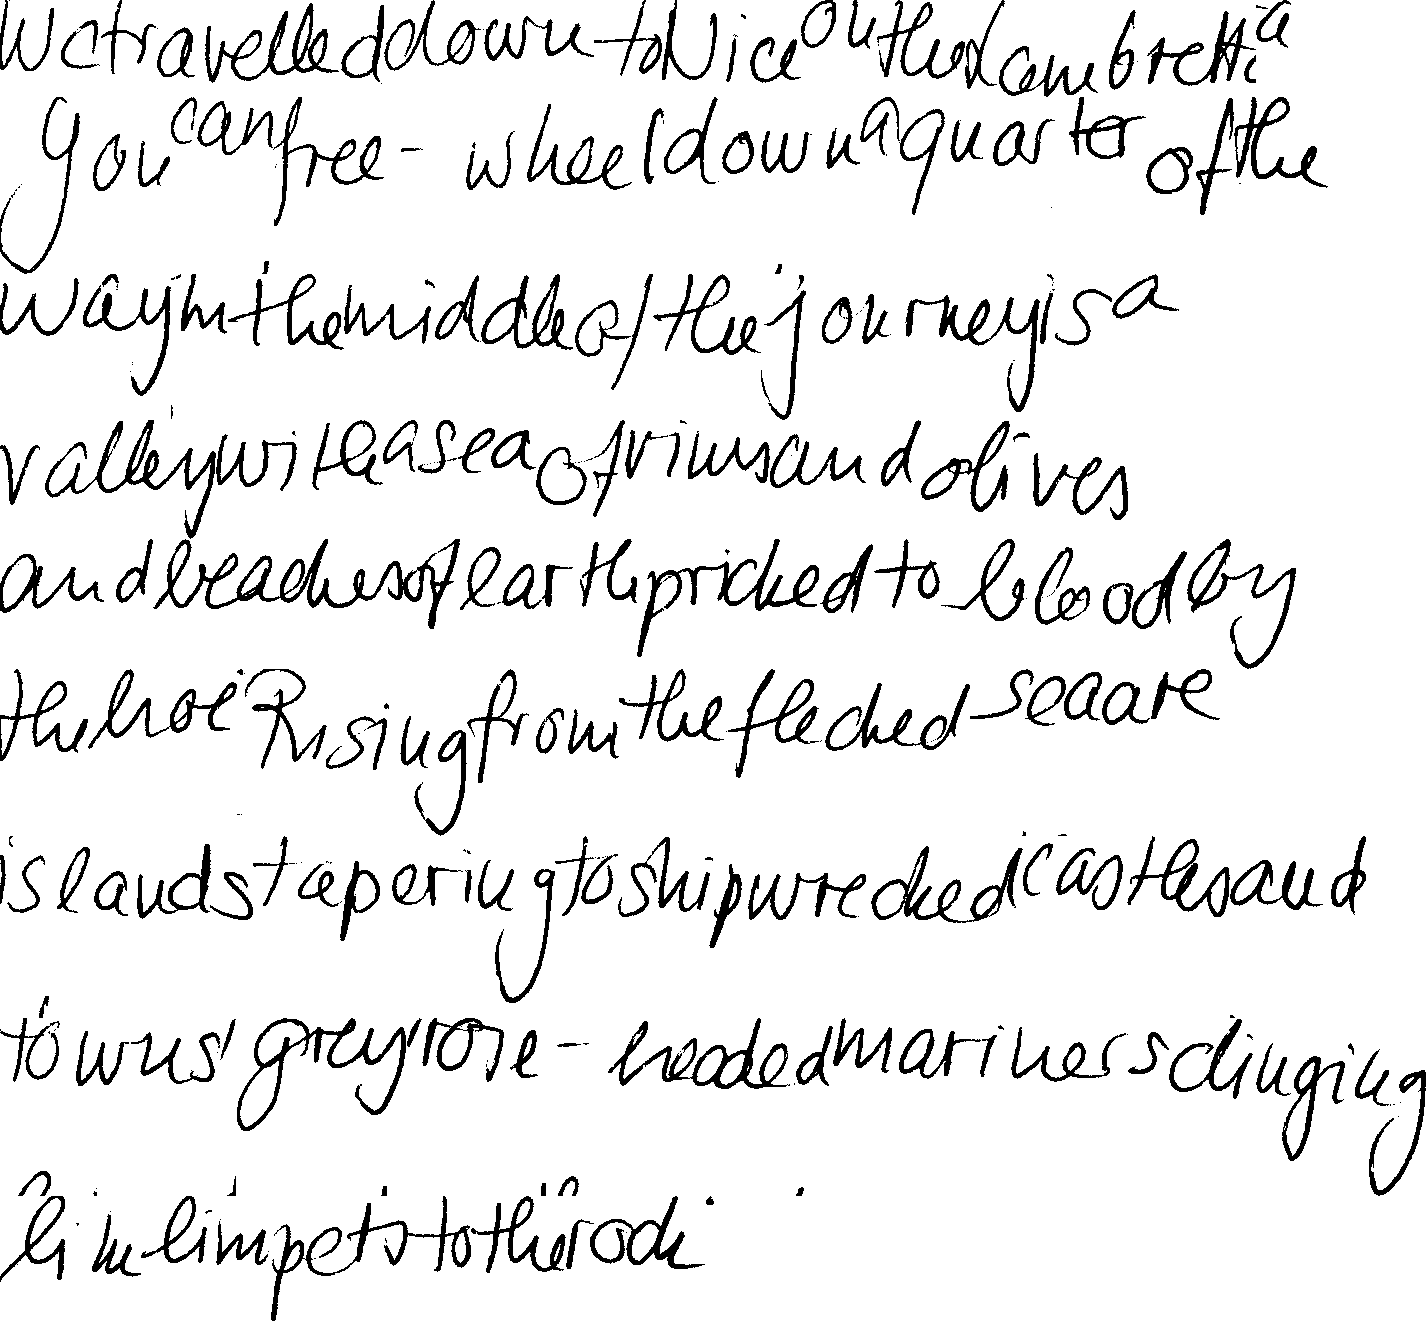 We travelled down to Nice on the Lambretta
You can free-wheel down a quarter of the
way in the middle of the journey is a
valley with a sea of vines and olives
and beaches of earth pricked to blood by
the hoe Rising from the flecked sea are
islands tapering to shipwrecked castles and
towns grey rose-headed mariners clinging
like limpets to the rock